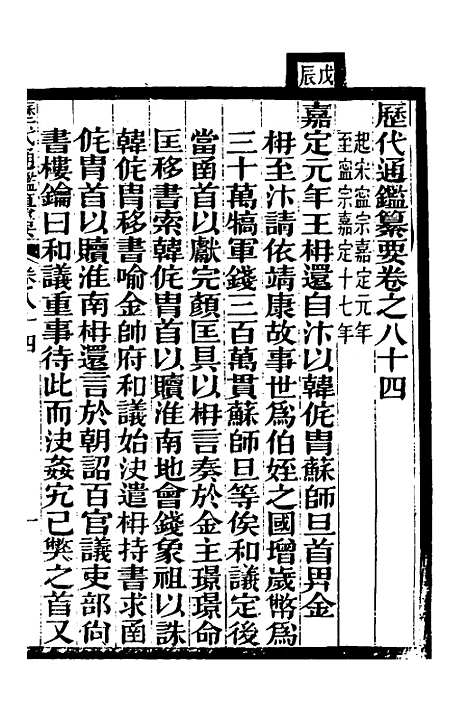 戊辰
歷代通鑑纂要卷之八十四
起宋寧宗嘉定元年
至寧宗嘉定十七年
嘉定元年王柟還自汴以韓侂胄蘇師旦首畀金
柟至汴請依靖康故事世爲伯姪之國增歲幣爲
三十萬犒軍錢三百萬貫蘇師旦等俟和議定後
當函首以獻完顏匡具以柟言奏於金主璟璟命
匡移書索韓侂胄首以贖淮南地會錢象祖以誅
韓侂胄移書喻金帥府和議始決遣柟持書求函
侂胄首以贖淮南柟還言於朝詔百官議吏部尙
書樓鑰曰和議重事待此而決姦宄已斃之首又
歷代通鑑纂要 卷八十四 一